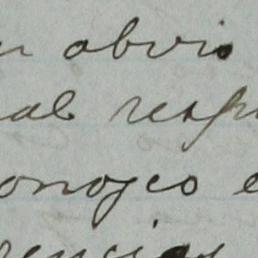 n obvio
al resp
onozco e
rencias